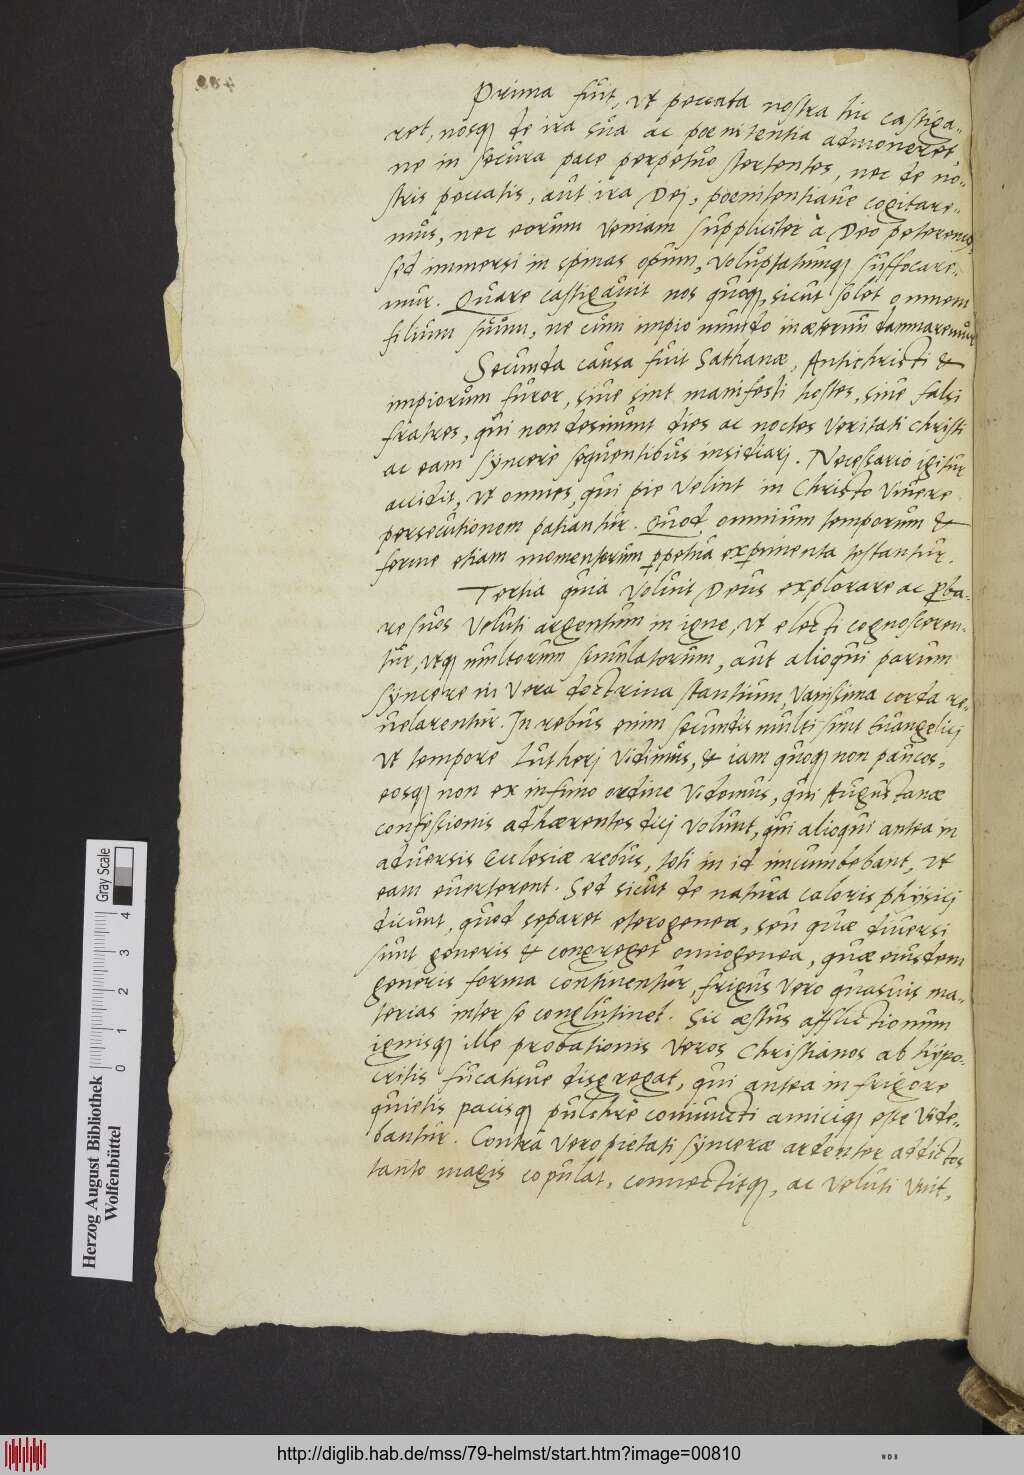 Prima fuit, vt peccata nostra hic castiga-
ret, nosq de ira sua ac poenitentia admoneret,
ne in secura pace perpetuo stertentes, nec de no-
stris peccatis, aut ira Dej, poenitentiaue cogitare-
mus, nec eorum veniam suppliciter à Deo peteremus,
sed immersi in spinas opum, voluptatumq suffocare-
mur. Quare castigauit nos quoq, sicut solet omnem
filium suum, ne cum impio mundo in æternum damnaremur
Secunda causa fuit Sathanæ, Antichristi &
impiorum furor, siue sint manifesti hostes, siue falsi
fratres, qui non desinunt dies ac noctes veritati Christi
ac eam syncerè sequentibus insidiarj. Necessario igitur
accidit, vt omnes, qui pie velint in Christo viuere
persecutionem patiantur. Quod omnium temporum &
ferme etiam momentorum ppetua experimenta testantur.
Tertia quia voluit Deus explorare ac proba-
re suos veluti argentum in igne, vt electi cognosceren-
tur, vtq multorum simulatorum, aut alioqui parum
syncere in vera doctrina stantium, vanissima corda re-
uelarentur. In rebus enim secundis multi sunt Euangelicj
vt tempore Lutherj vidimus, & iam quoq non paucos,
eosq non ex infimo ordine videmus, qui Augustanæ
confessionis adhærentes dicj volunt, qui alioqui antea in
aduersis Ecclesiæ rebus, toti in id incumbebant, vt
eam euerterent. Sed sicut de natura caloris physicj
dicunt, quod separet eterogenea, seu quæ diuersi
sunt generis & congreget omiogenea, quæ eiusdem
generis forma continentur, frigus vero quasuis ma-
terias inter se conglutinet. Sic æstus afflictionum
ignisq ille probationis veros Christianos ab hypo-
critis fucatisue disgregat, qui antea in frigore
quietis pacisq pulchrè coniuncti amiciq esse vide-
bantur. Contra vero pietati synceræ ardenter addictos
tanto magis copulat, connectitq, ac veluti vnit,
Herzog August Bibliothek
Wolfenbüttel
Gray Scale
0 1 2 3 4
http://diglib.hab.de/mss/79-helmst/start.htm?image=00810